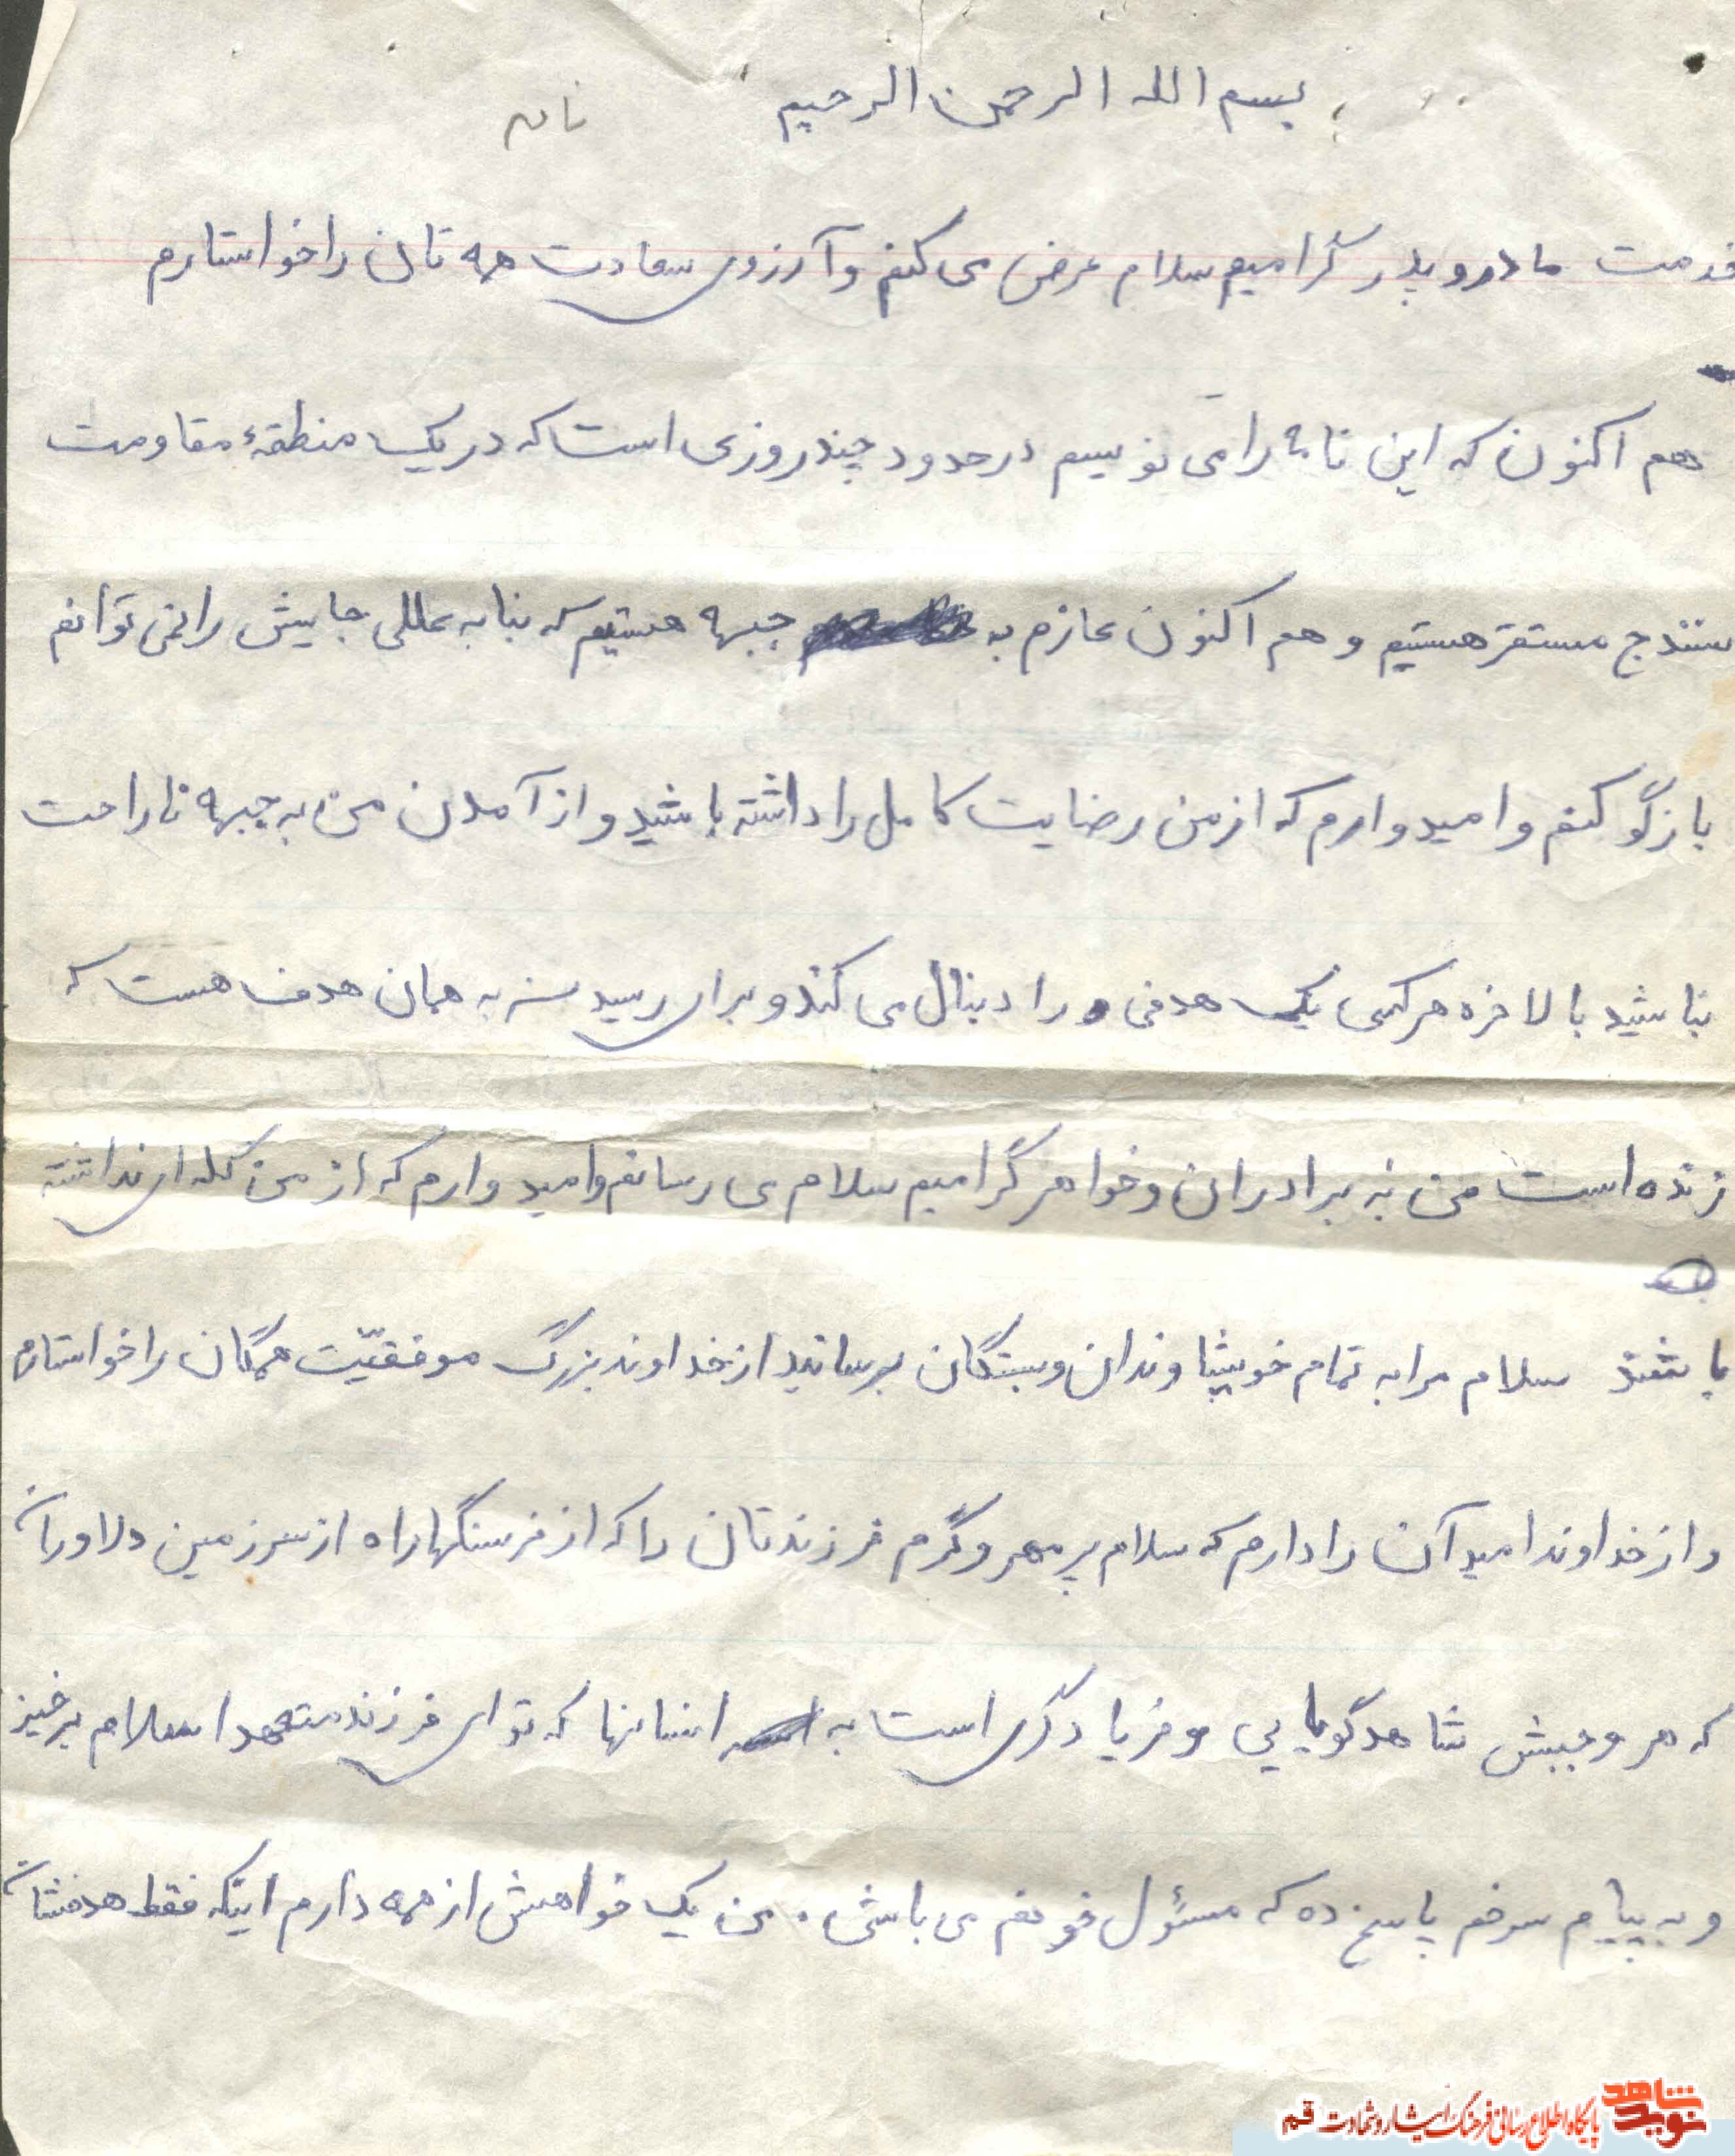 بسم الله الرحمن الرحیم
خدمت مادر و پدر گرامیم سلام عرض می کنم و آرزوی سعادت همه تان را خواستارم
هم اکنون که این نامه را می نویسم در حدود چند روزی است که در یک منطقهٔ مقاومت
سنندج مستقر هستیم و هم اکنون عازم به جبهه هستیم که بنا به عللی جایش را نمی توانم
بازگو کنم و امیدوارم که از من رضایت کامل را داشته باشید و از آمدن من به جبهه ناراحت
نباشید بالاخره هر کسی یک هدفی را دنبال می کند و برای رسیدن به همان هدف هست که
زنده است من به برادران و خواهر گرامیم سلام می رسانم و امیدوارم که از من گله ای نداشته
باشند سلام مرا به تمام خویشاوندان و بستگان برسانید از خداوند بزرگ موفقیّت همگان را خواستارم
و از خداوند امید آن را دارم که سلام پر مهر و گرم فرزندتان را که از فرسنگها راه از سرزمین دلاوران
که هر وجبش شاهد گویایی و فریادگری است به انسانها که تو ای فرزند متعهد اسلام برخیز
و به پیام سرخم پاسخ ده که مسئول خونم می باشی . من یک خواهش از همه دارم اینکه فقط هدفشان
نوید شاهد
پایگاه اطلاع رسانی فرهنگ ایثار و شهادت قم